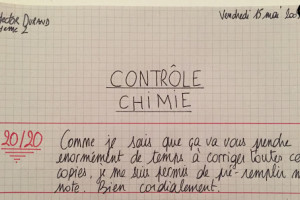 Hector DURAND
Vendredi 15 mai
CONTRÔLE
CHIMIE
20/20
Comme je sais que ça va vous prendre
enormément de temps à corriger toutes
copies, je me suis permis de pré-remplir
note. Bien cordialement.